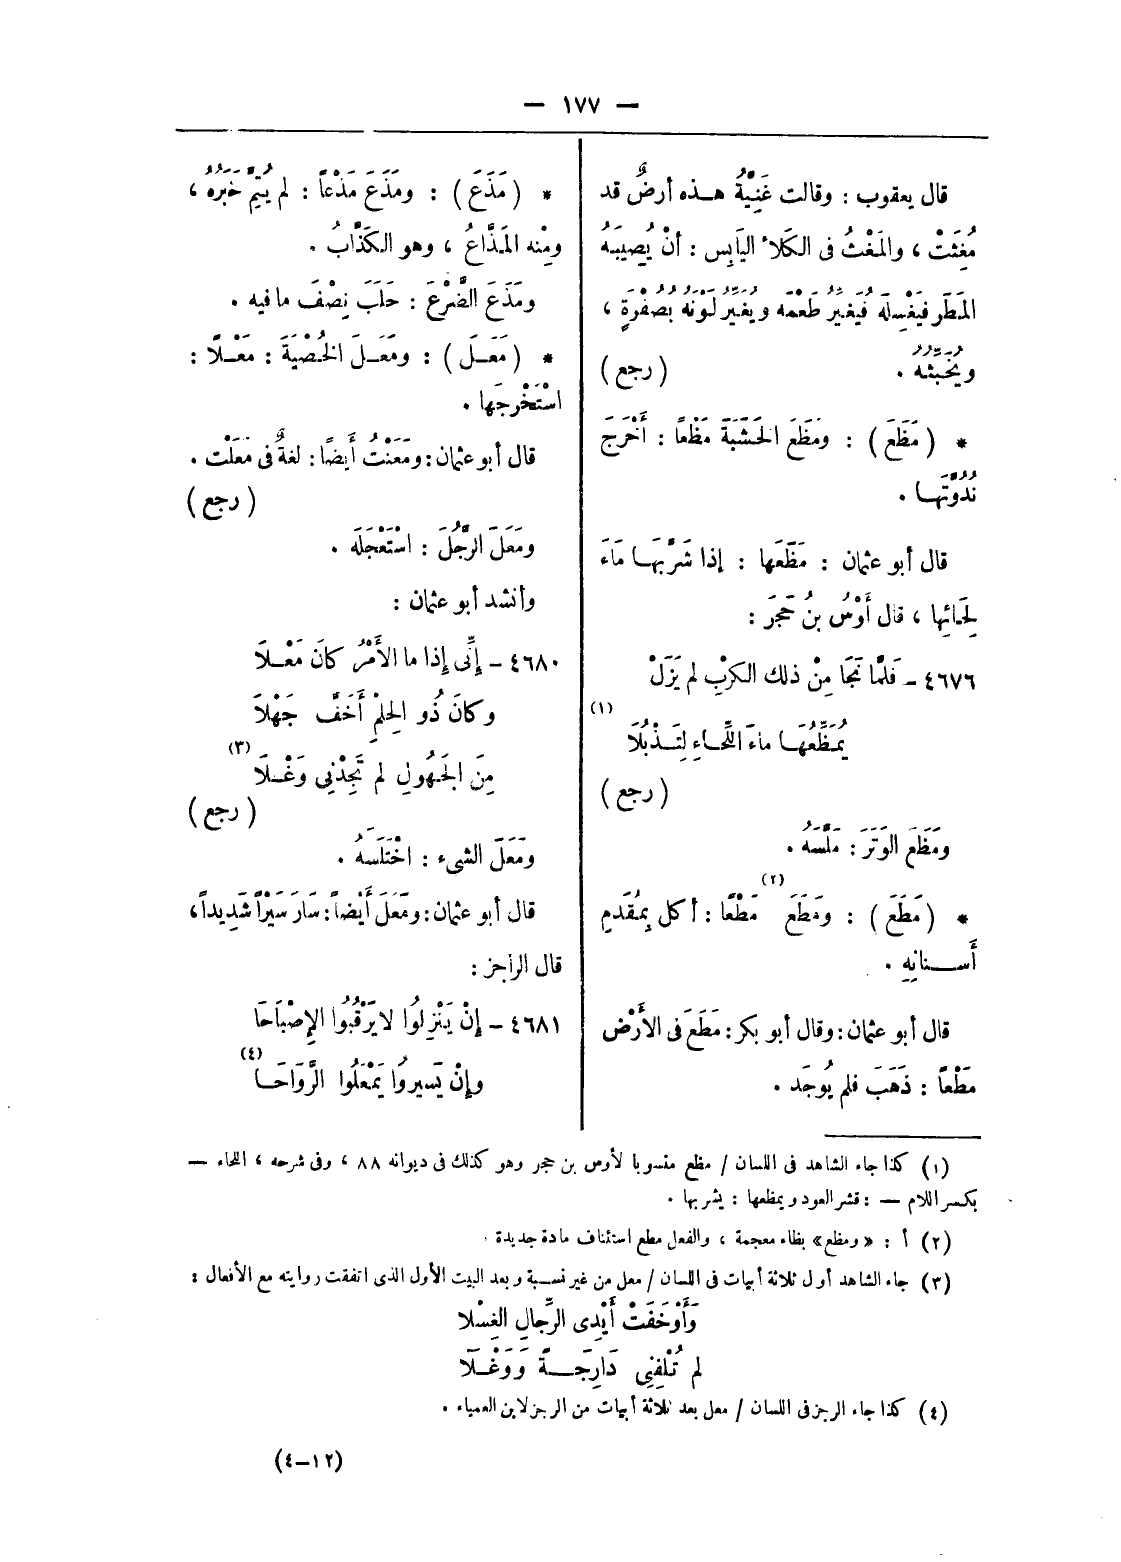 — ١٧٧ —
قال يعقوب : وقالت غَنِيَّةُ هـذه أرضٌ قد
مُغِثَتْ ، والمَغْثُ فى الكلأ اليَابِس : أنْ يُصِيبَهُ
المَطَر فيَغْسِلَه فَيُغَيِّرُ طَعْمَه ويُغَيِّرُ لَوْنَهُ بصُفْرَةٍ ،
ويُخَبِّثُه .          (رجع)
* (مَظَعَ) : ومَظَعَ الخَشَبَةَ مَظْعًا : أَخْرَجَ
نُدُوَّتَهـا .
قال أبو عثمان : مَظَّعَها : إذا شَرَّبَهـا مَاءَ
لِحَائِها ، قال أَوْسُ بنُ حَجَرَ :
٤٦٧٦ – فَلَمَّا نَجَا مِنْ ذلك الكرْبِ لم يَزَلْ
يُمَظِّعُهَـا ماءَ اللِّحَـاءِ لِتَـذْبُلَا (١)
(رجع)
ومَظَعَ الوَتَرَ : مَلَّسَهُ .
* (مَطَعَ) : ومَطَعَ (٢) مَطْعًا : أكل بِمُقَدمِ
أَســنانِهِ .
قال أبو عثمان : وقال أبو بكر : مَطَعَ فى الأَرْض
مَطْعاً : ذَهَبَ فلم يُوجَد .
* (مَذَعَ) : ومَذَعَ مَذْعاً : لم يُتِمَّ خَبَرَهُ ،
ومِنْه المَذَّاعُ ، وهو الكَذَّابُ .
ومَذَعَ الضَّرْعَ : حَلَبَ نِصْفَ ما فيه .
* (مَعَـلَ) : ومَعَـلَ الخُصْيَةَ : مَعْـلًا :
اسْتَخْرجَها .
قال أبو عثمان : ومَعَنْتُ أَيضًا : لغةٌ فى مَعَلْت .
(رجع)
ومَعَلَ الرَّجُلَ : اسْتَعْجَلَه .
وأنشد أبو عثمان :
٤٦٨٠ – إنِّى إذا ما الأَمْرُ كانَ مَعْـلَا
وكانَ ذُو الحِلْمِ أَخَفَّ جَهْلَا
مِنَ الجَهُولِ لم تَجِدْنِى وَغْـلَا (٣)
(رجع)
ومَعَلَ الشىء : اخْتَلَسَهُ .
قال أبو عثمان : ومَعَلَ أَيْضاً : سَارَ سَيْرًا شَدِيداً ،
قال الراجز :
٤٦٨١ – إنْ يَنْزِلُوا لا يَرْقُبُوا الإِصْبَاحَا
وإنْ يَسِيرُوا يَمْعَلُوا الرَّوَاحَـا (٤)
(١) كذا جاء الشاهد فى اللسان / مظع منسوبا لأوس بن حجر وهو كذلك فى ديوانه ٨٨ ، وفى شرحه ، اللحاء –
بكسر اللام – : قشر العود ويمظعها : يشربها .
(٢) أ : «ومظع» بظاء معجمة ، والفعل مطع استئناف مادة جديدة .
(٣) جاء الشاهد أول ثلاثة أبيات فى اللسان / معل من غير نسبة وبعد البيت الأول الذى اتفقت روايته مع الأفعال :
وَأَوْخَفَتْ أَيْدِى الرِّجالِ الغِسْلا
لم تُلْفِنِى دَارِجَــةً وَوَغْـلَا
(٤) كذا جاء الرجز فى اللسان / معل بعد ثلاثة أبيات من الرجز لابن العمياء .
(١٢–٤)